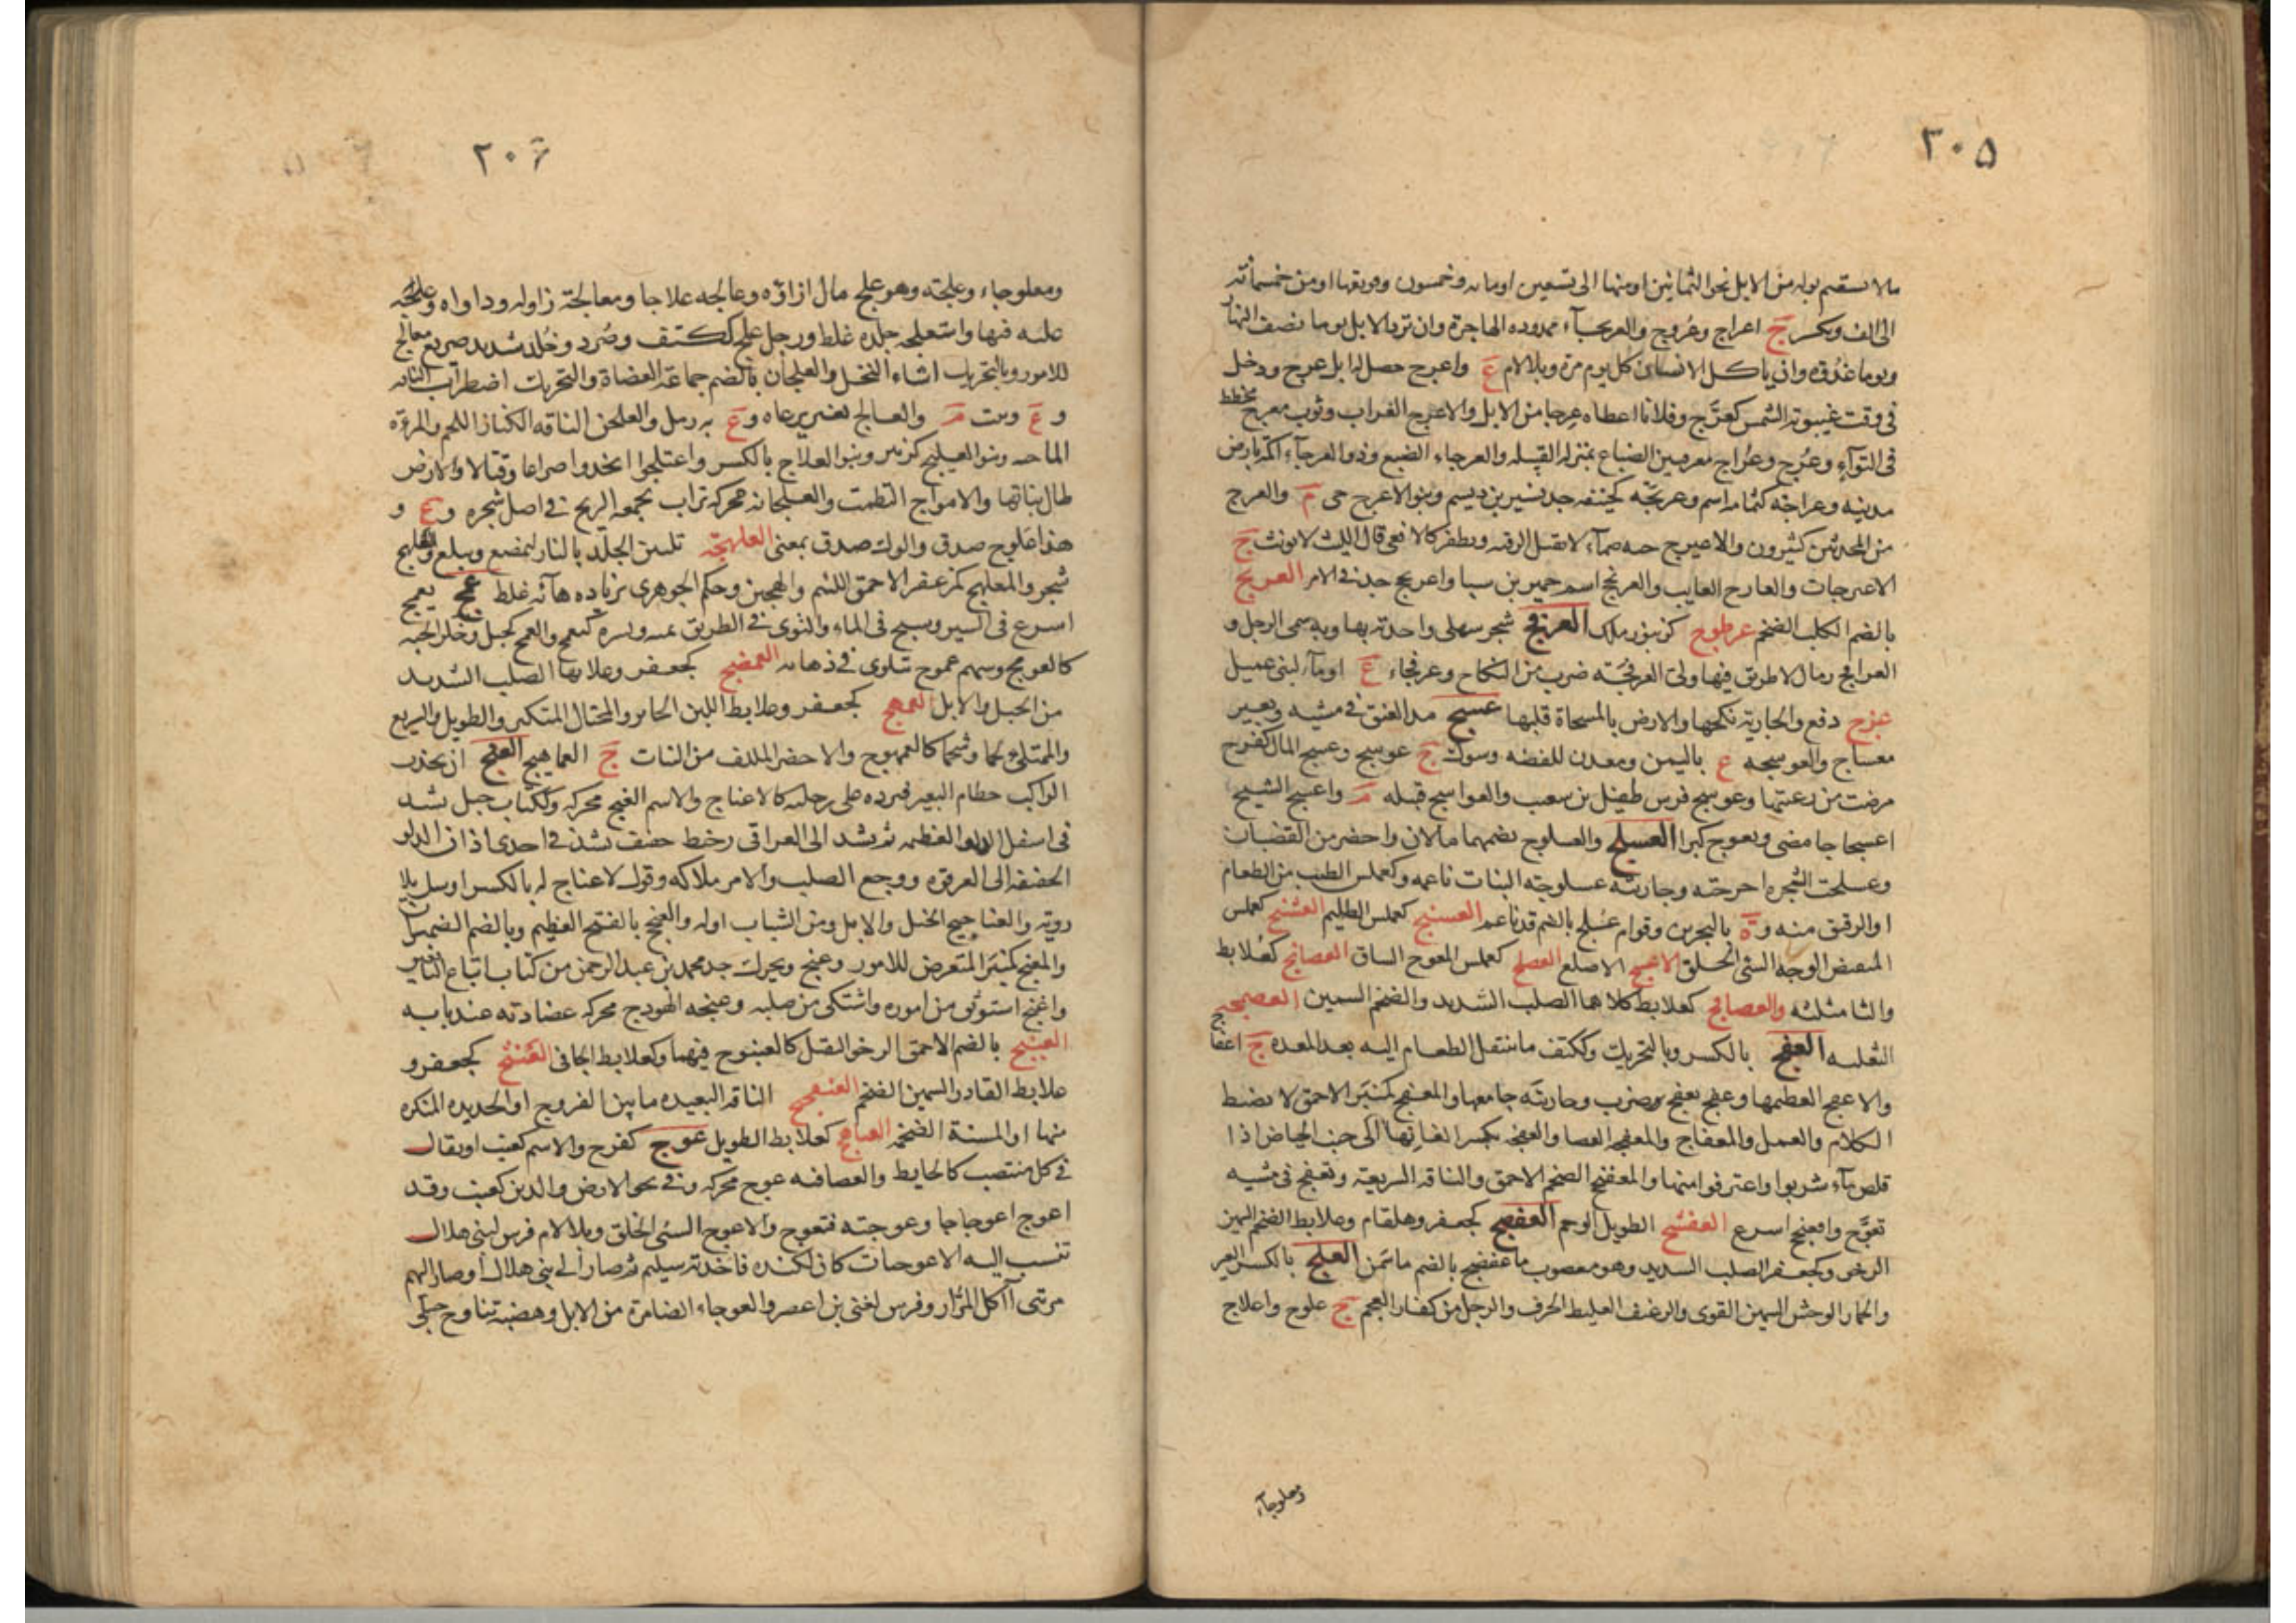 ٣٠٥
مالا يستقيم بوله من الابل نحو الثمانين او منها الى تسعين او مائه وخمسون وفويقها او من خمسمائة
الى الف ويكسر ج اعراج وعُروج والعريجآء ممدوده الهاجرة وان ترد الابل يوما نصف النهار
ويوما غُدوة وان ياكل الانسان كل يوم مرة وبلا لام ع واعرج حصل له ابل عرج ودخل
فى وقت غيبوبة الشمس كعرَّج وفلانا اعطاه عرجا من الابل والاعرج الغراب وثوب معرج مخطط
فى التوآء وعُرج وعُراج معرفتين الضباع بمنزلة القبيله والعرجاء الضبع وذو العرجآء اكمة بارض
مدينه وعراجة كثمامه اسم وعريجه كحنيفه جد نسير بن ديسم وبنو الاعرج حى م والعرج
من المحدثين كثيرون والاعيرج حيه صمآء لا تقبل الرقيه ويطفر كالافعى قال الليث لا يونث ج
الاعيرجات والعارج الغايب والعرنج اسم حمير بن سبا واعرنج جد فى الامر العربج
بالضم الكلب الضخم عرطوج كزنبور ملك العرفج شجر سهلى واحدته بها وبه سمى الرجل و
العرافج رمال لا طريق فيها ولى العرفجة ضرب من النكاح وعرفجاء ع او مآء لبنى عميل
عزج دفع والجارية نكحها والارض بالمسحاة قلبها عسج مد العنق فى مشيه وبعير
معساج والعوسجه ع باليمن ومعدن للفضه وشوك ج عوسج وعسج المال كفرح
مرضت من رعيتها وعوسج فرس طفيل بن شعيب والعواسج قبيله م واعسج الشيخ
اعسجاجا مضى وتعوج كبرا العسلج والعسلوج بضمهما ما لان واخضر من القضبان
وعسلجت الشجره اخرجته وجارية عسلوجة النبات ناعمه وكعملس الطيب من الطعام
او الرقيق منه و ة بالبحرين وقوام عُسلج بالضم قد ناعم العسنج كعملس الظليم العشنج كعملس
المنقبض الوجه السئ الخلق الاعصج الاصلع العصلج كعملس المعوج الساق العصافج كعُلابط
والثا مثلثه والعصافج كعلابط كلاهما الصلب الشديد والضخم السمين العضمجه
الثعلبه العفج بالكسر وبالتحريك وككتف ما ينتقل الطعام اليه بعد المعده ج اعفاج
والاعفج العظيمها وعفج يعفج ضرب وجاريته جامعها والمعفج كمنبر الاحمق لا يضبط
الكلام والعمل والمعفاج والمعفجه العصا والعفجه بكسر الفا نِهآ الى جنب الحياض اذا
قلص مآء شربوا واغترفوا منها والمعفنج الضخم الاحمق والناقه السريعه وتعفج فى مشيه
تعوَّج وافعنج اسرع العفشج الطويل الوخم العفضج كجعفر وهلقام وعلابط الضخم السمين
الرخو وكجعفر الصلب الشديد وهو معصوب ما عفضج بالضم ما سَمن العلج بالكسر العير
والحمار الوحش السمين القوى والرغيف الغليظ الحرف والرجل من كفار العجم ج علوج واعلاج
ومعلوجآء
٢٠٦
ومعلوجاء وعلجه وهو علج مال ازاؤه وعالجه علاجا ومعالجة زاوله وداواه وعلجه
غلبه فيها واستعلج جلده غلظ ورجل علج ككتف وصُرد وخُلَّد شديد صريع معالج
للامور وبالتحريك اشاء النخل والعلجان بالضم جماعة العضاة والتحريك اضطراب الناقه
و ع ونبت م والعالج بعير يرعاه و ع به رمل والعلجن الناقه الكناز اللحم والمرءة
الماجنه وبنو العليج كزبير وبنو العلاج بالكسر واعتلجوا اتخذوا صراعا وقتالا والارض
طال نباتها والامواج التطمت والعلجانه محركه تراب تجمعه الريح فى اصل شجره و ع و
هذا علوج صدق والوك صدق بمعنى العلهجة تليين الجلد بالنار ليمضغ ويبلع والعلهج
شجر والمعلهج كمزعفر الاحمق اللئيم والهجين وحكم الجوهرى بزياده هآئه غلط عمج يعمج
اسرع فى السير وسبح فى الماء والتوى فى الطريق يمنه ويسره كتعمج والعمج كجبل وسُكَّر الحيه
كالعومج وسهم عموج يتلوى فى ذهابه العمضج كجعفر وعلابط الصلب الشديد
من الخيل والابل العمهج كجعفر وعلابط اللبن الخاثر والمختال المتكبر والطويل والسريع
والممتلئ لحما وشحما كالعمهوج والاخضر الملتف من النبات ج العماهيج العنج ان يجذب
الراكب خطام البعير فيرده على رجليه كالاعناج والاسم العنج محركه وككتاب حبل يشد
فى اسفل الدلو العظيمه ثم يشد الى العراقى وخيط خفيف يشد فى احدى اذان الدلو
الخفيفه الى العرقوه ووجع الصلب والامر ملاكه وقول لا عناج له بالكسر ارسل بلا
رويه والعناجيج الخيل والابل ومن الشباب اوله والعنج بالفتح العظيم وبالضم الضيمران
والمعنج كمنبر المتعرض للامور وعنج ويحرك جد محمد بن عبد الرحمن من كتاب اتباع التابعين
واعنج استوثق من اموره واشتكى من صلبه وعنجه الهودج محركه عضادته عند بابه
العنبج بالضم الاحمق الرخو الثقيل كالعنبوج فيهما وكعلابط الجافى العنثج كجعفر و
علابط القادر السمين الضخم العنفجج الناقه البعيده ما بين الفروج او الحديده المنكره
منها او المسنة الضخمه العناهج كعلابط الطويل عوج كفرح والاسم كعنب او يقال
فى كل منتصب كالحايط والعصا فيه عوج محركه وفى نحو الارض والدين كعنب وقد
اعوج اعوجاجا وعوجته فتعوج والاعوج السئ الخلق وبلا لام فرس لبنى هلال
تنسب اليه الاعوجيات كان لكنده فاخذته سليم ثم صار الى بنى هلال او صار اليهم
من بنى آكل المرار وفرس لغنى بن اعصر والعوجاء الضامرة من الابل وهضبة تناوح جبلى